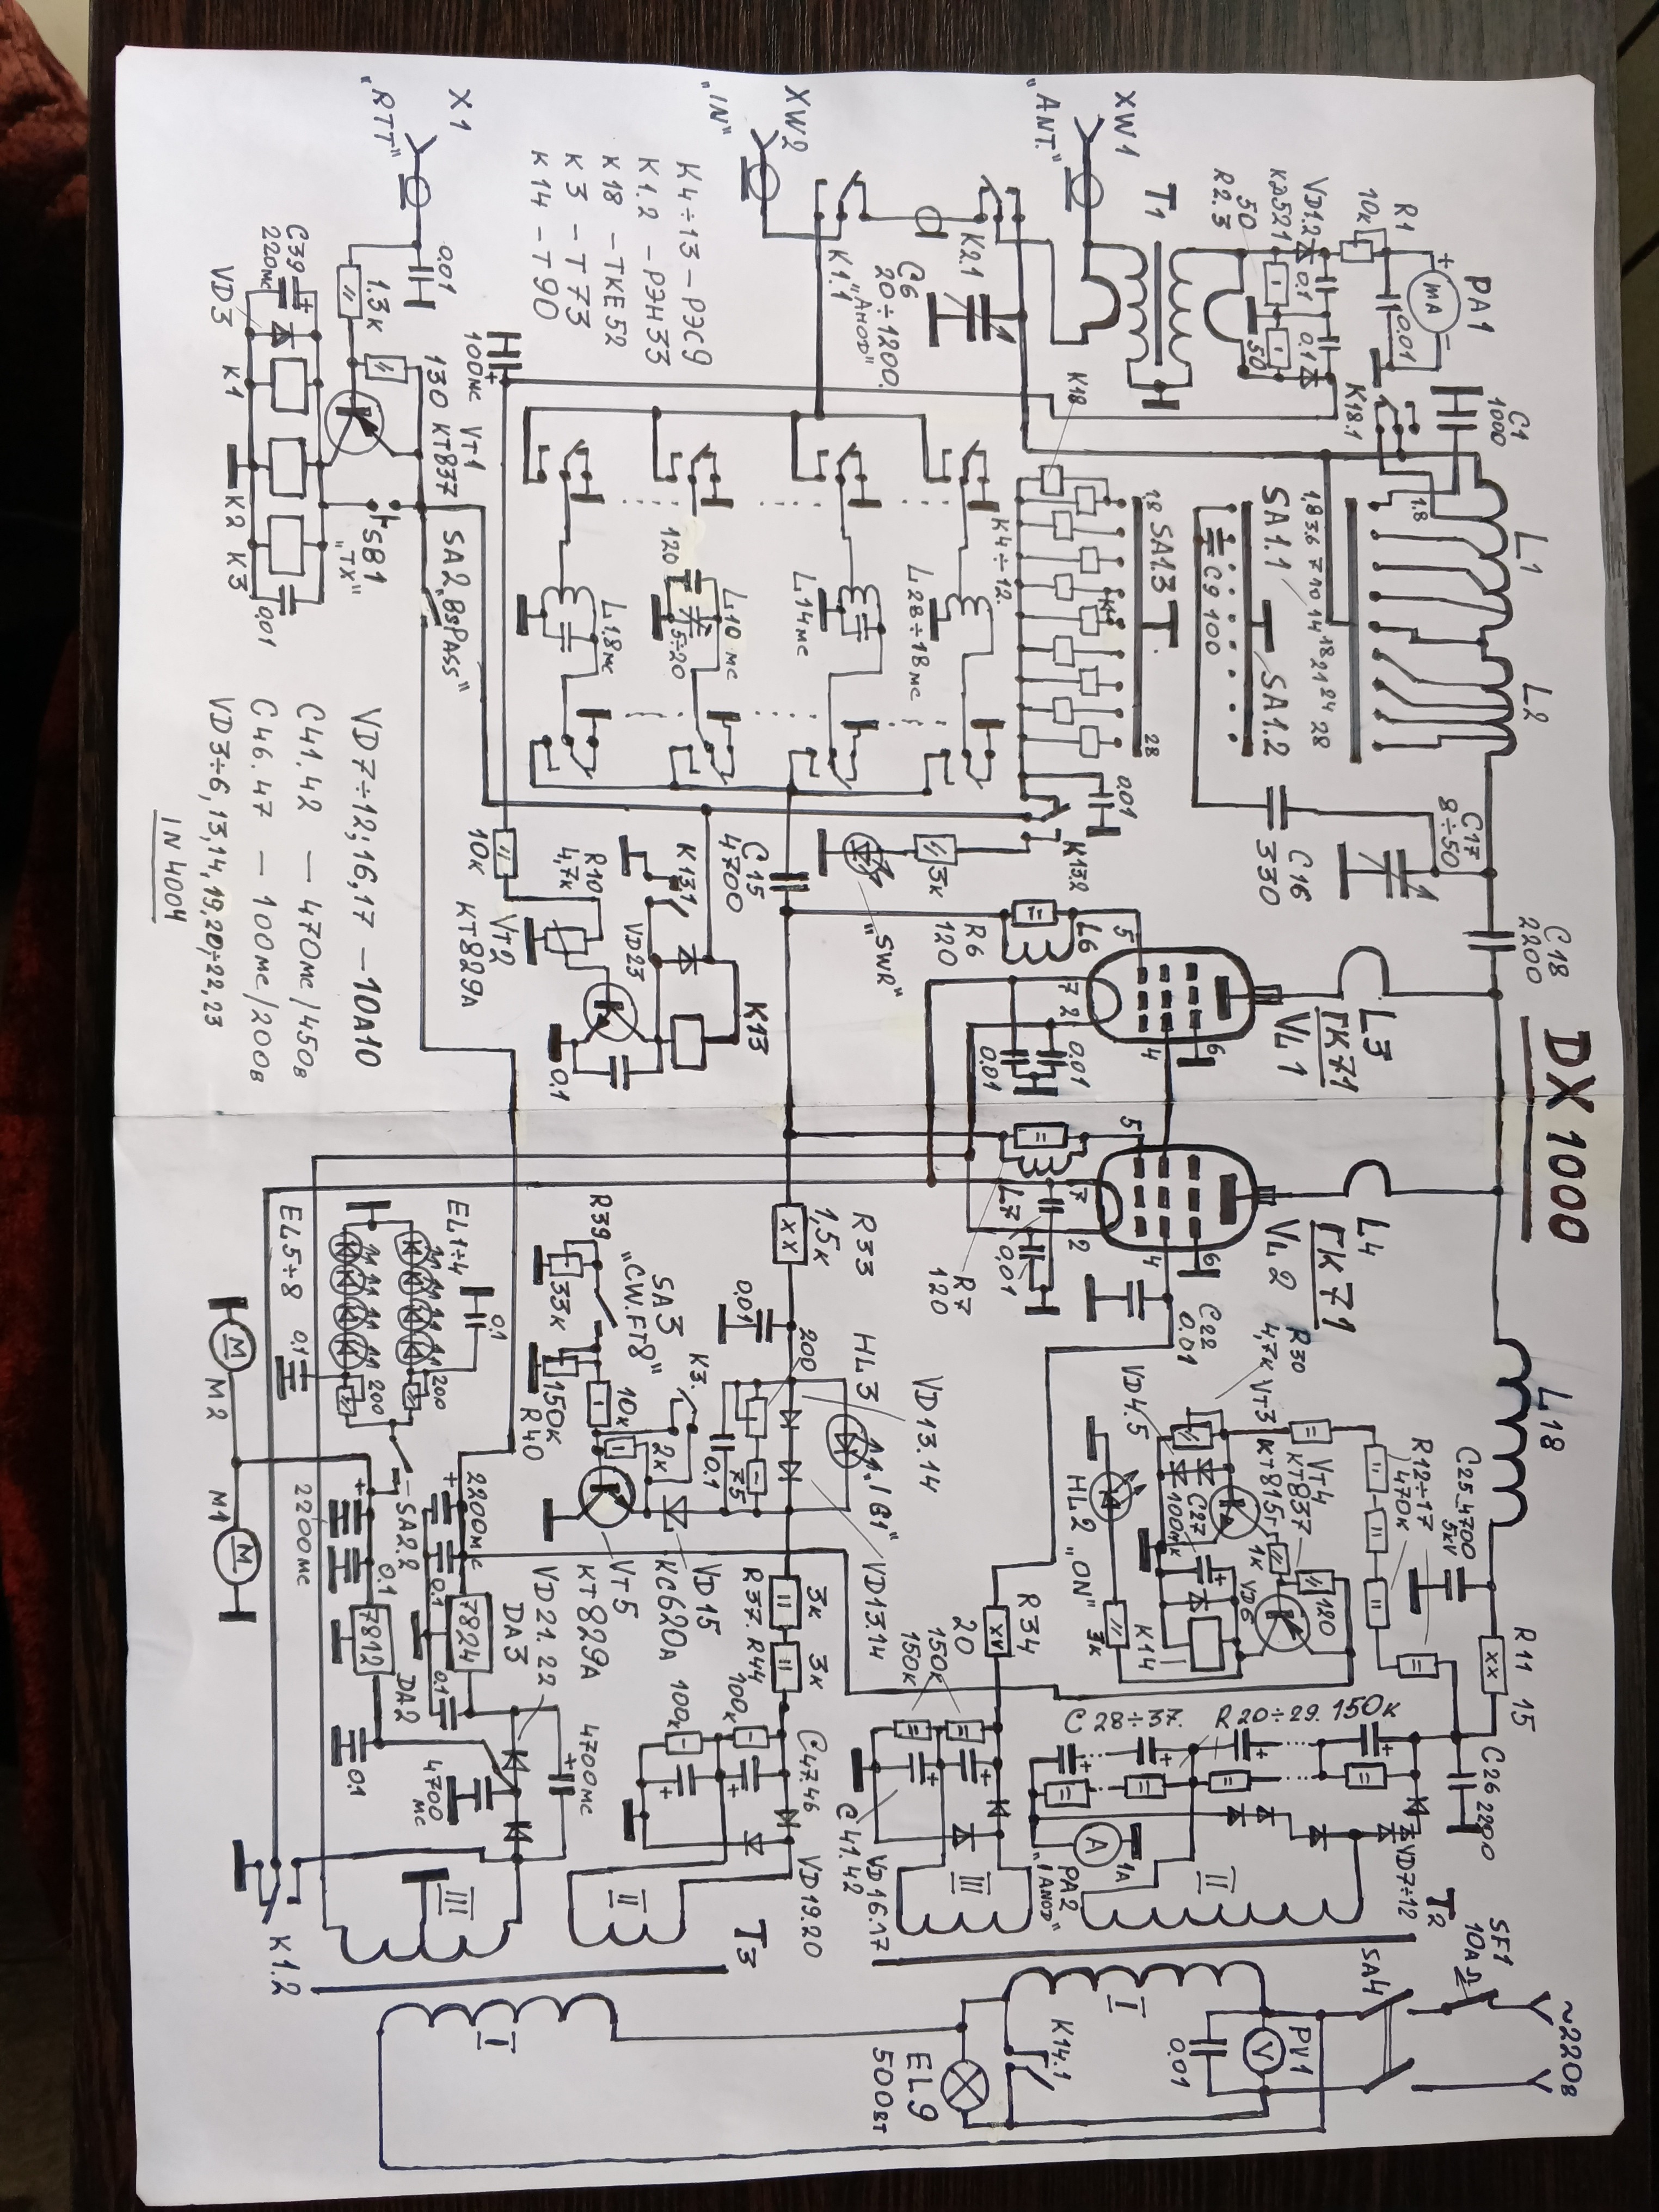 DX1000
PA1
+
mA
−
R1
10к
0.01
VD1.2
КД521
50
R2.3
0.1
0.1
50
T1
XW1
"ANT."
C1
1000
K18.1
1.8
L1
L2
1.8 3.6 7 10 14 18 21 24 28
SA1.1
SA1.2
C9 100
C16
330
C17
8÷50
C18
2200
L3
ГК71
VL1
L4
ГК71
VL2
K2.1
C6
20÷1200.
"АНОД"
K1.1
XW2
"IN"
K18
1.8
SA1.3
28
K4÷12.
0.01
K13.2
3к
"SWR"
L28÷18мс
L14мс
L10мс
120
5÷20
L1.8мс
K4÷13 – РЭС9
K1.2 – РЭН33
K18 – ТКЕ52
K3 – Т73
K14 – Т90
X1
"RTT"
0.01
1.3к
130
VT1
КТ837
100мс
+
C39
220мс
VD3
K1
K2
K3
0.01
SB1
"TX"
SA2 "BsPASS"
C15
4700
K13.1
VD23
K13
10к
R10
4,7к
VT2
КТ829А
0.1
5
L6
R6
120
7
2
4
6
0.01
0.01
5
L7
R7
120
7
2
4
6
0.01
C22
0.01
VD7÷12,16,17 – 10A10
C41.42 – 470мс/450в
C46.47 – 100мс/200в
VD3÷6,13,14,19,20÷22,23
1N4004
R33
1,5к
0.01
200
HL3
VD13.14
"1G1"
VD13.14
0.1
75
K3.
SA3
"CW.FT8"
R39
33к
150к
R40
10к
2к
VT5
КТ829А
VD15
КС620А
3к
3к
R37.R44
100к
100к
C47.46
VD19.20
L18
C25 4700
5кv
R11 15
R12÷17
470к
R30
4,7к
VT3
КТ815г
VT4
КТ837
VD4.5
C27
100мк
1к
VD6
120
HL2 "ON"
3к
K14
R34
20
150к
150к
C41.42
VD16.17
C28÷37.
R20÷29. 150к
C26 2200
VD7÷12
PA2
"I ANOD"
A
1A
T2
II
III
I
SF1
10A
~220в
SA4
PV1
V
0.01
K14.1
EL9
500вт
T3
II
III
I
EL1÷4
0.1
200
EL5÷8
0.1
200
SA2.2
2200мс
0.1
7824
DA3
0.1
VD21.22
4700мс
2200мс
0.1
7812
DA2
0.1
4700
мс
M
M2
M
M1
K1.2